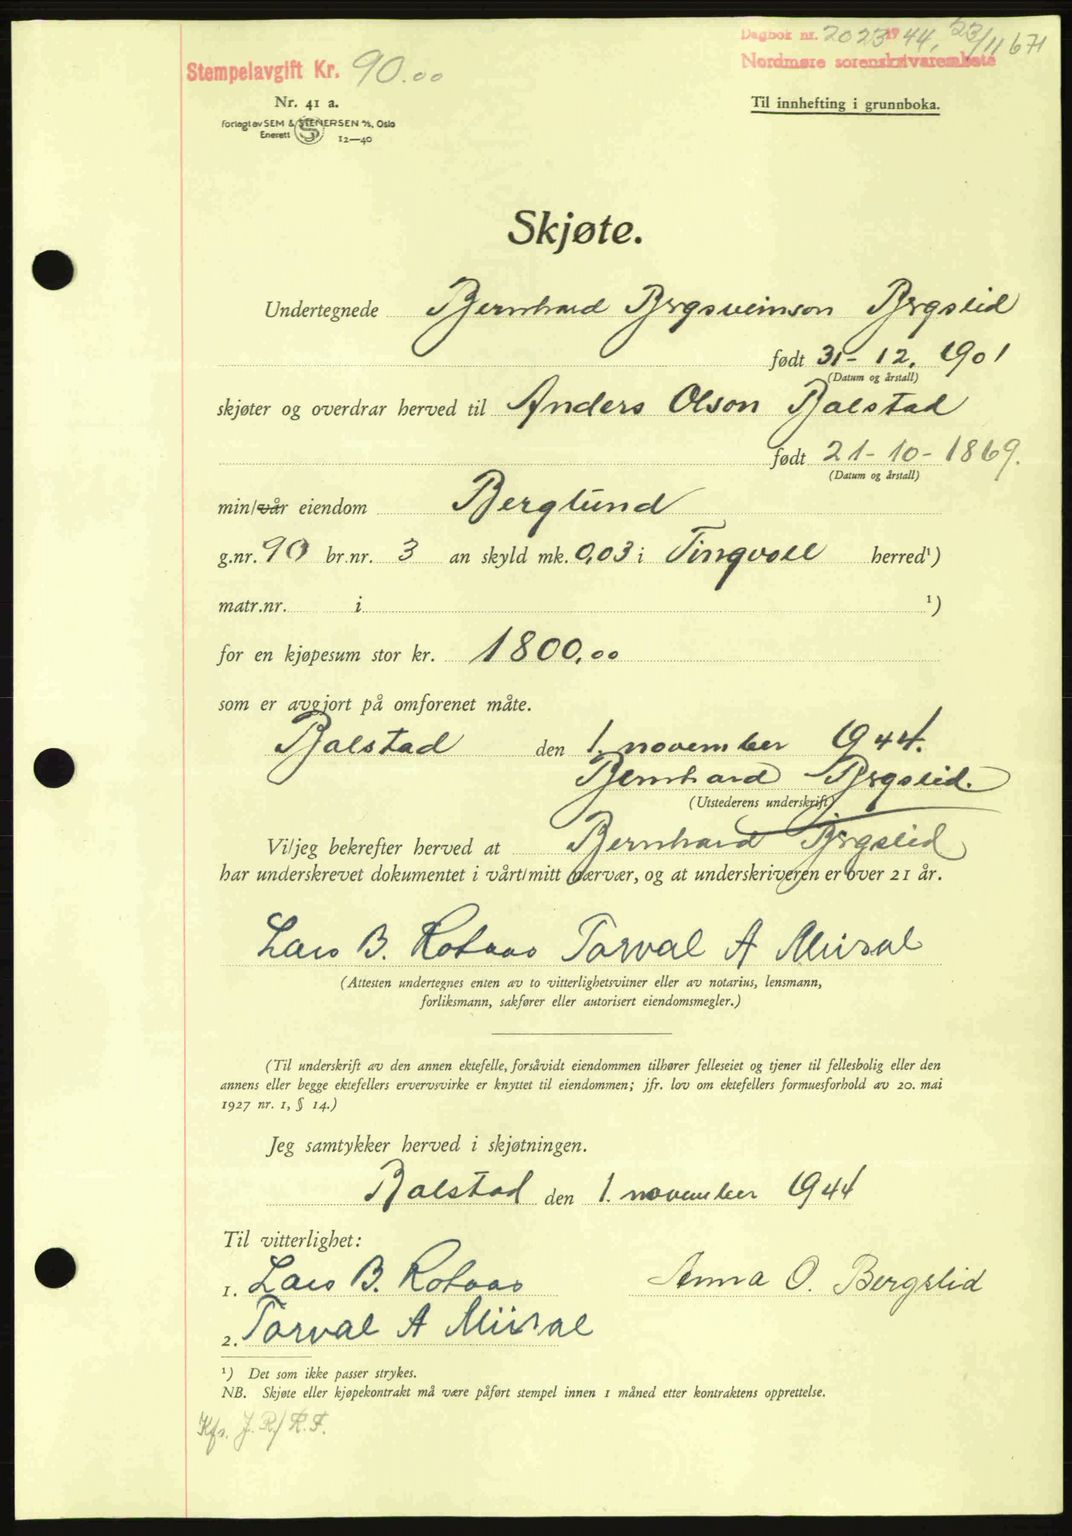 Dagbok nr. 2023 1944, 23/11 671
Stempelavgift Kr. 90.00
Nordmøre sorenskrivarembete
Nr. 41 a.
Til innhefting i grunnboka.
Forlagt av SEM & STENERSEN A/S, Oslo
Enerett S 12—40
Skjøte.
Undertegnede Bernhard Bergsveinson Bergslid
født 31-12. 1901
(Datum og årstall)
skjøter og overdrar herved til Anders Olson Balstad
født 21-10-1869.
(Datum og årstall)
min/vår eiendom Berglund
g.nr. 90 br.nr. 3 an skyld mk. 0,03 i Tingvoll herred¹)
matr.nr. i ¹)
for en kjøpesum stor kr. 1800,00
som er avgjort på omforenet måte.
Balstad den 1. november 1944.
Bernhard Bergslid.
(Utstederens underskrift)
Vi/jeg bekrefter herved at Bernhard Bergslid
har underskrevet dokumentet i vårt/mitt nærvær, og at underskriveren er over 21 år.
Lars B. Rotvaas Torval A Miisal
(Attesten undertegnes enten av to vitterlighetsvitner eller av notarius, lensmann,
forliksmann, sakfører eller autorisert eiendomsmegler.)
(Til underskrift av den annen ektefelle, forsåvidt eiendommen tilhører felleseiet og tjener til fellesbolig eller den
annens eller begge ektefellers ervervsvirke er knyttet til eiendommen; jfr. lov om ektefellers formuesforhold av 20. mai
1927 nr. 1, § 14.)
Jeg samtykker herved i skjøtningen.
Balstad den 1. november 1944
Til vitterlighet:
1. Lars B. Rotvaas Anna O. Bergslid
2. Torval A Miisal
¹) Det som ikke passer strykes.
NB. Skjøte eller kjøpekontrakt må være påført stempel innen 1 måned etter kontraktens opprettelse.
Kfr. J.R/ R.F.